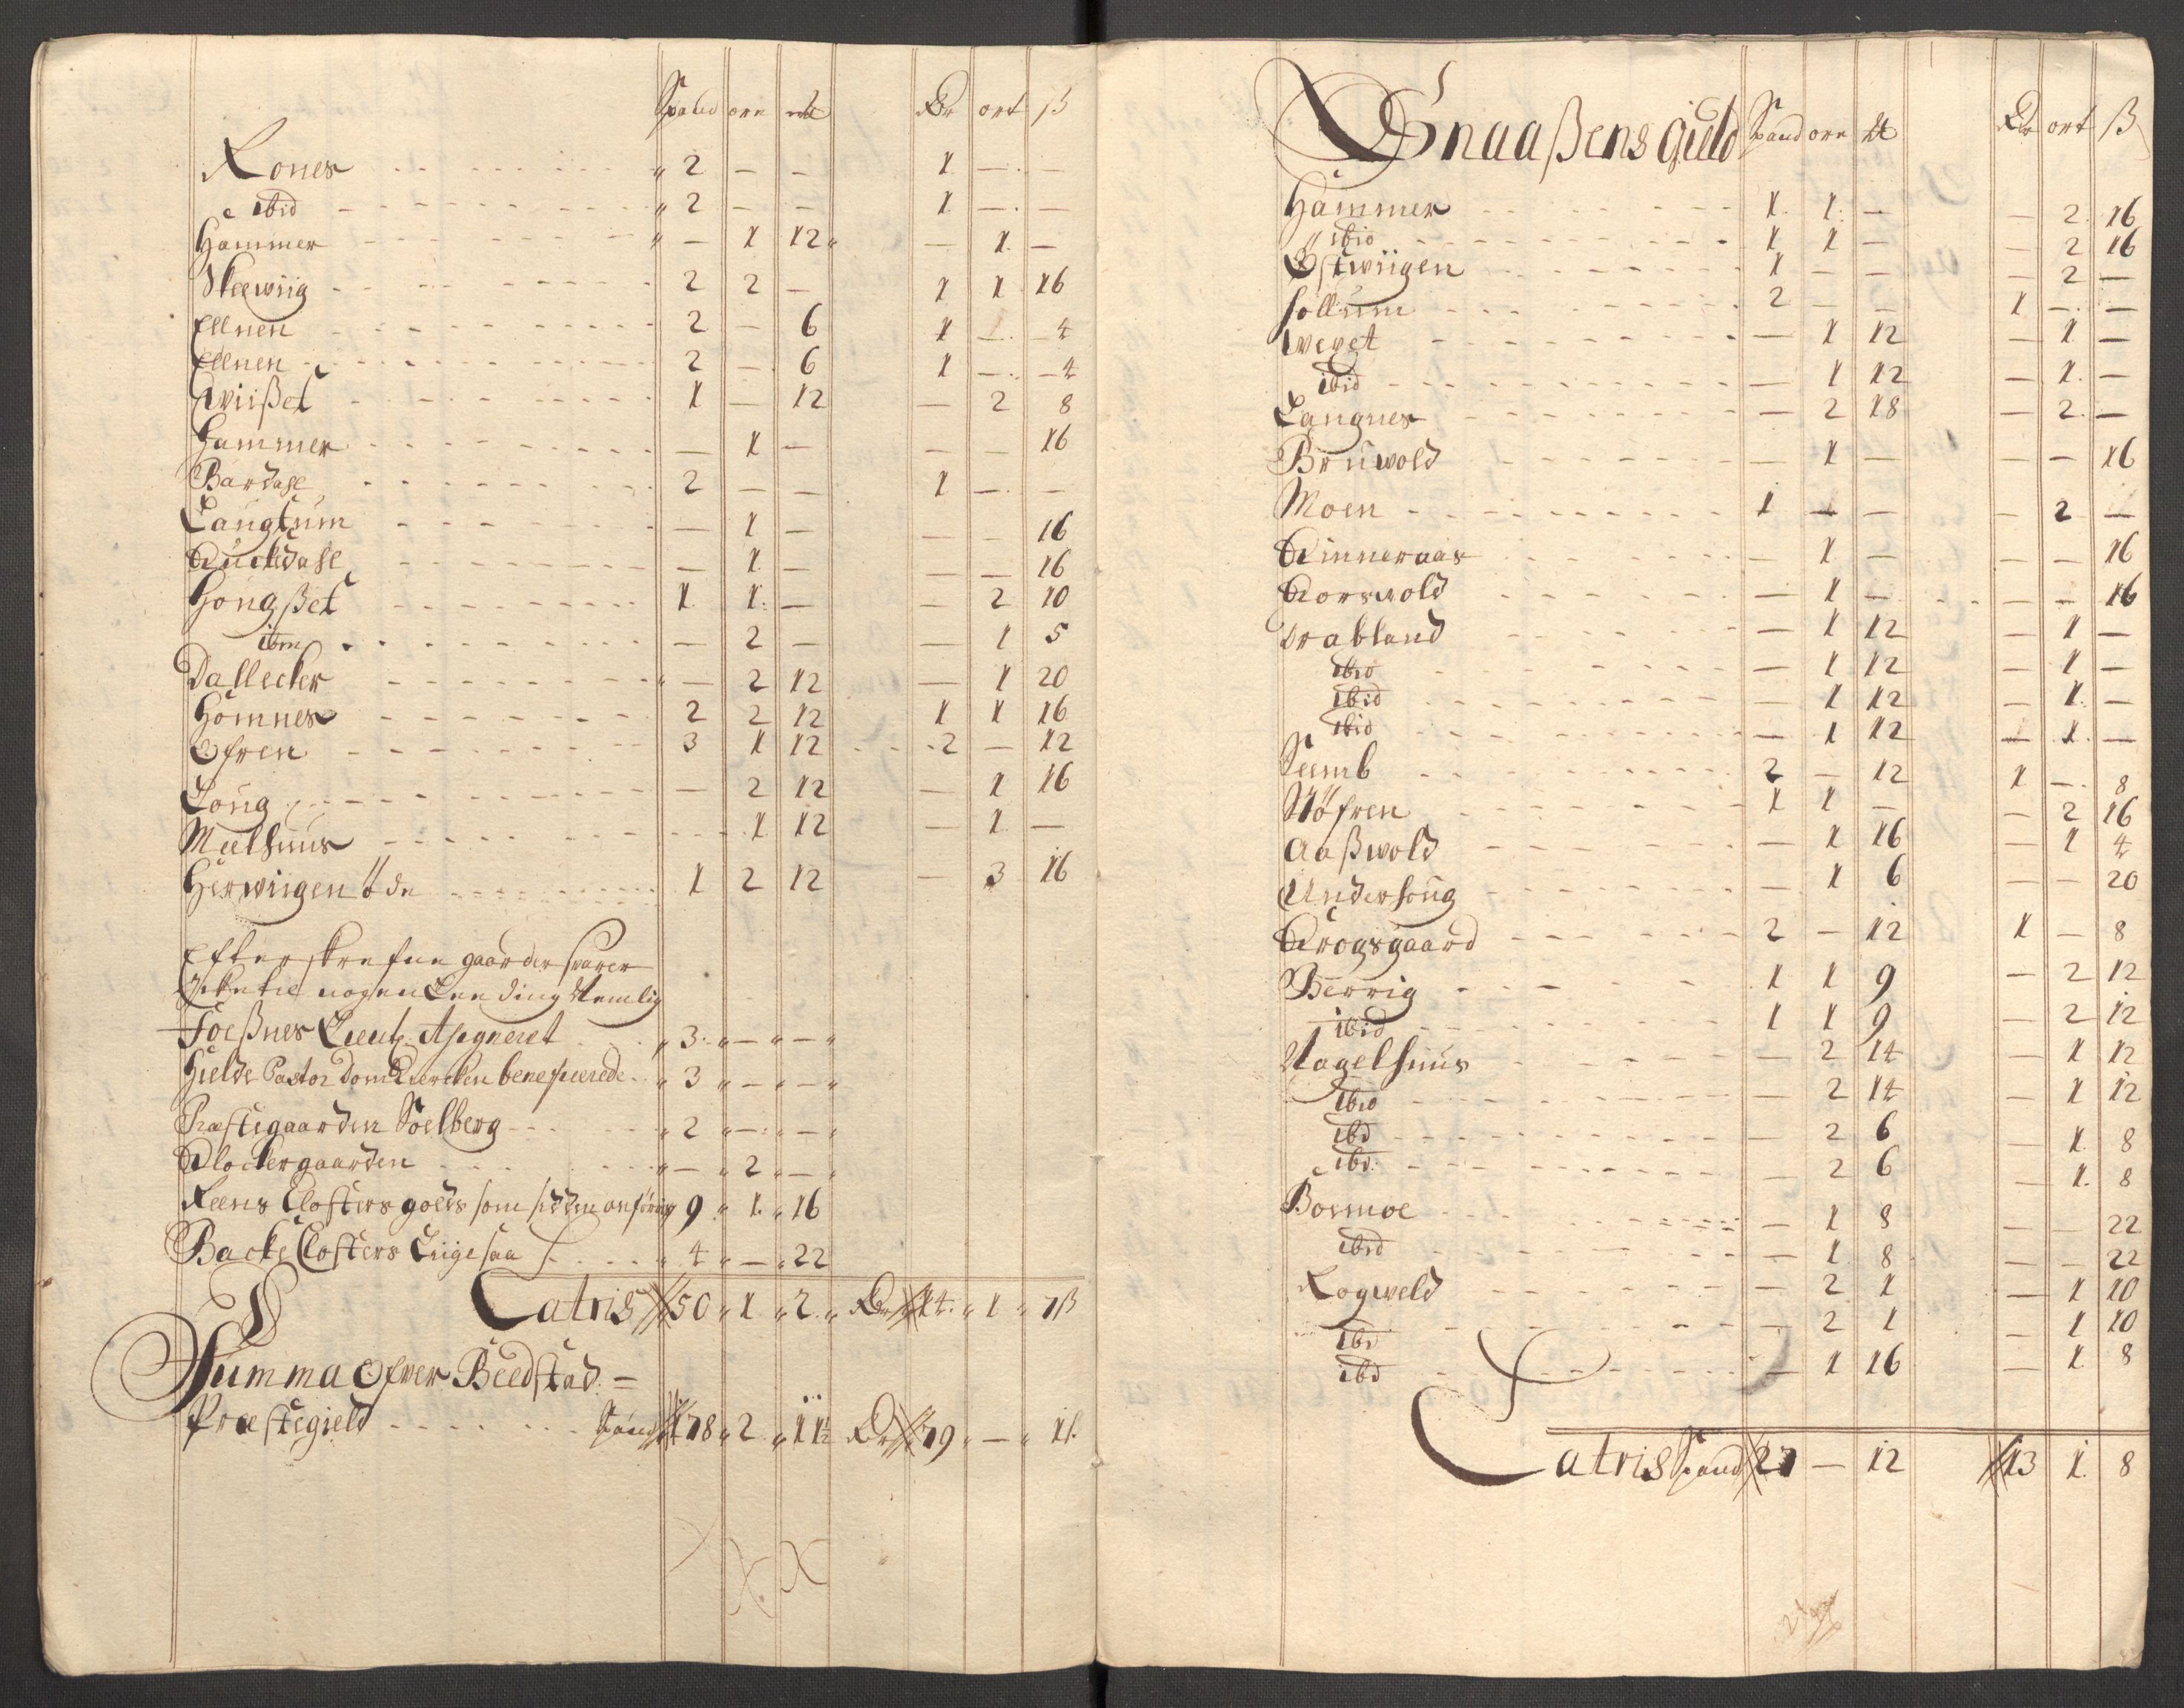 Spand ore Dr ort ß
Rones „ 2 — — 1 — —
ibid „ 2 — — 1 — —
Hammer „ — 1 12 „ — 1 —
Skeewiig 2 2 — 1 1 16
Ellnen 2 — 6 1 — 4
Ellnen 2 — 6 1 — 4
1 — 12 — 2 8
Hammer — 1 — — — 16
Bardahl 2 — — 1 — —
Langtum — 1 — — — 16
— 1 — — — 16
Hongßet 1 1 — — 2 10
ibm — 2 — — 1 5
Dallecker „ — 2 12 — 1 20
Homnes 2 2 12 1 1 16
Ofren 3 1 12 2 — 12
Long — 2 12 — 1 16
Meelhuus 1 12 — 1 —
Herwiigen öde 1 2 12 — 3 16
Efterskrefne gaarder svarer
nogen Leeding Nemlig
Foeßnes Lieut. Asigneret „ 3 „ — „ — „
Gields Pastor Dom Kiercken beneficerede „ 3 „ — „ — „
Præstegaarden Soelberg „ 2 „ — „ — „
Klockergaarden „ — „ 2 „ — „
Reens Closters goeds som 9 „ 1 „ 16
Backe Closters Liigesaa „ 4 „ — „ 22
Latris 50 „ 1 „ 2 „ Dr 14 „ 1 „ 7 ß
Summa Ofver Beedstad
Præstegield Spand 178 „ 2 „ 11½ Dr 79 „ — „ 11
Snaaßens Gield Spand ore Dr ort ß
Hammer 1 1 — — 2 16
ibid 1 1 — — 2 16
Østwiigen 1 — — — 2 —
Sollum 2 — — 1 — —
— 1 12 — 1 —
ibid — 1 12 — 1 —
Langnes — 2 18 — 2 —
Bruwold — 1 — — — 16
Moen 1 — — — 2 —
Kinneraas — 1 — — — 16
Korswold — 1 — — — 16
— 1 12 — 1 —
ibid — 1 12 — 1 —
ibid — 1 12 — 1 —
ibid — 1 12 — 1 —
Seemb 2 — 12 1 — 8
Støfren 1 1 — — 2 16
Aaßwold — 1 16 — 1 4
— 1 6 — — 20
Krogsgaard 2 — 12 1 — 8
Berrig 1 1 9 — 2 12
ibid 1 1 9 — 2 12
Nagelhuus — 2 14 — 1 12
ibid — 2 14 — 1 12
ibd — 2 6 — 1 8
ibd — 2 6 — 1 8
Bosmoe — 1 8 — — 22
ibid — 1 8 — — 22
Rogweld — 2 1 — 1 10
ibd — 2 1 — 1 10
ibd — 1 16 — 1 8
Latris Spand 27 — 12 13 1 8